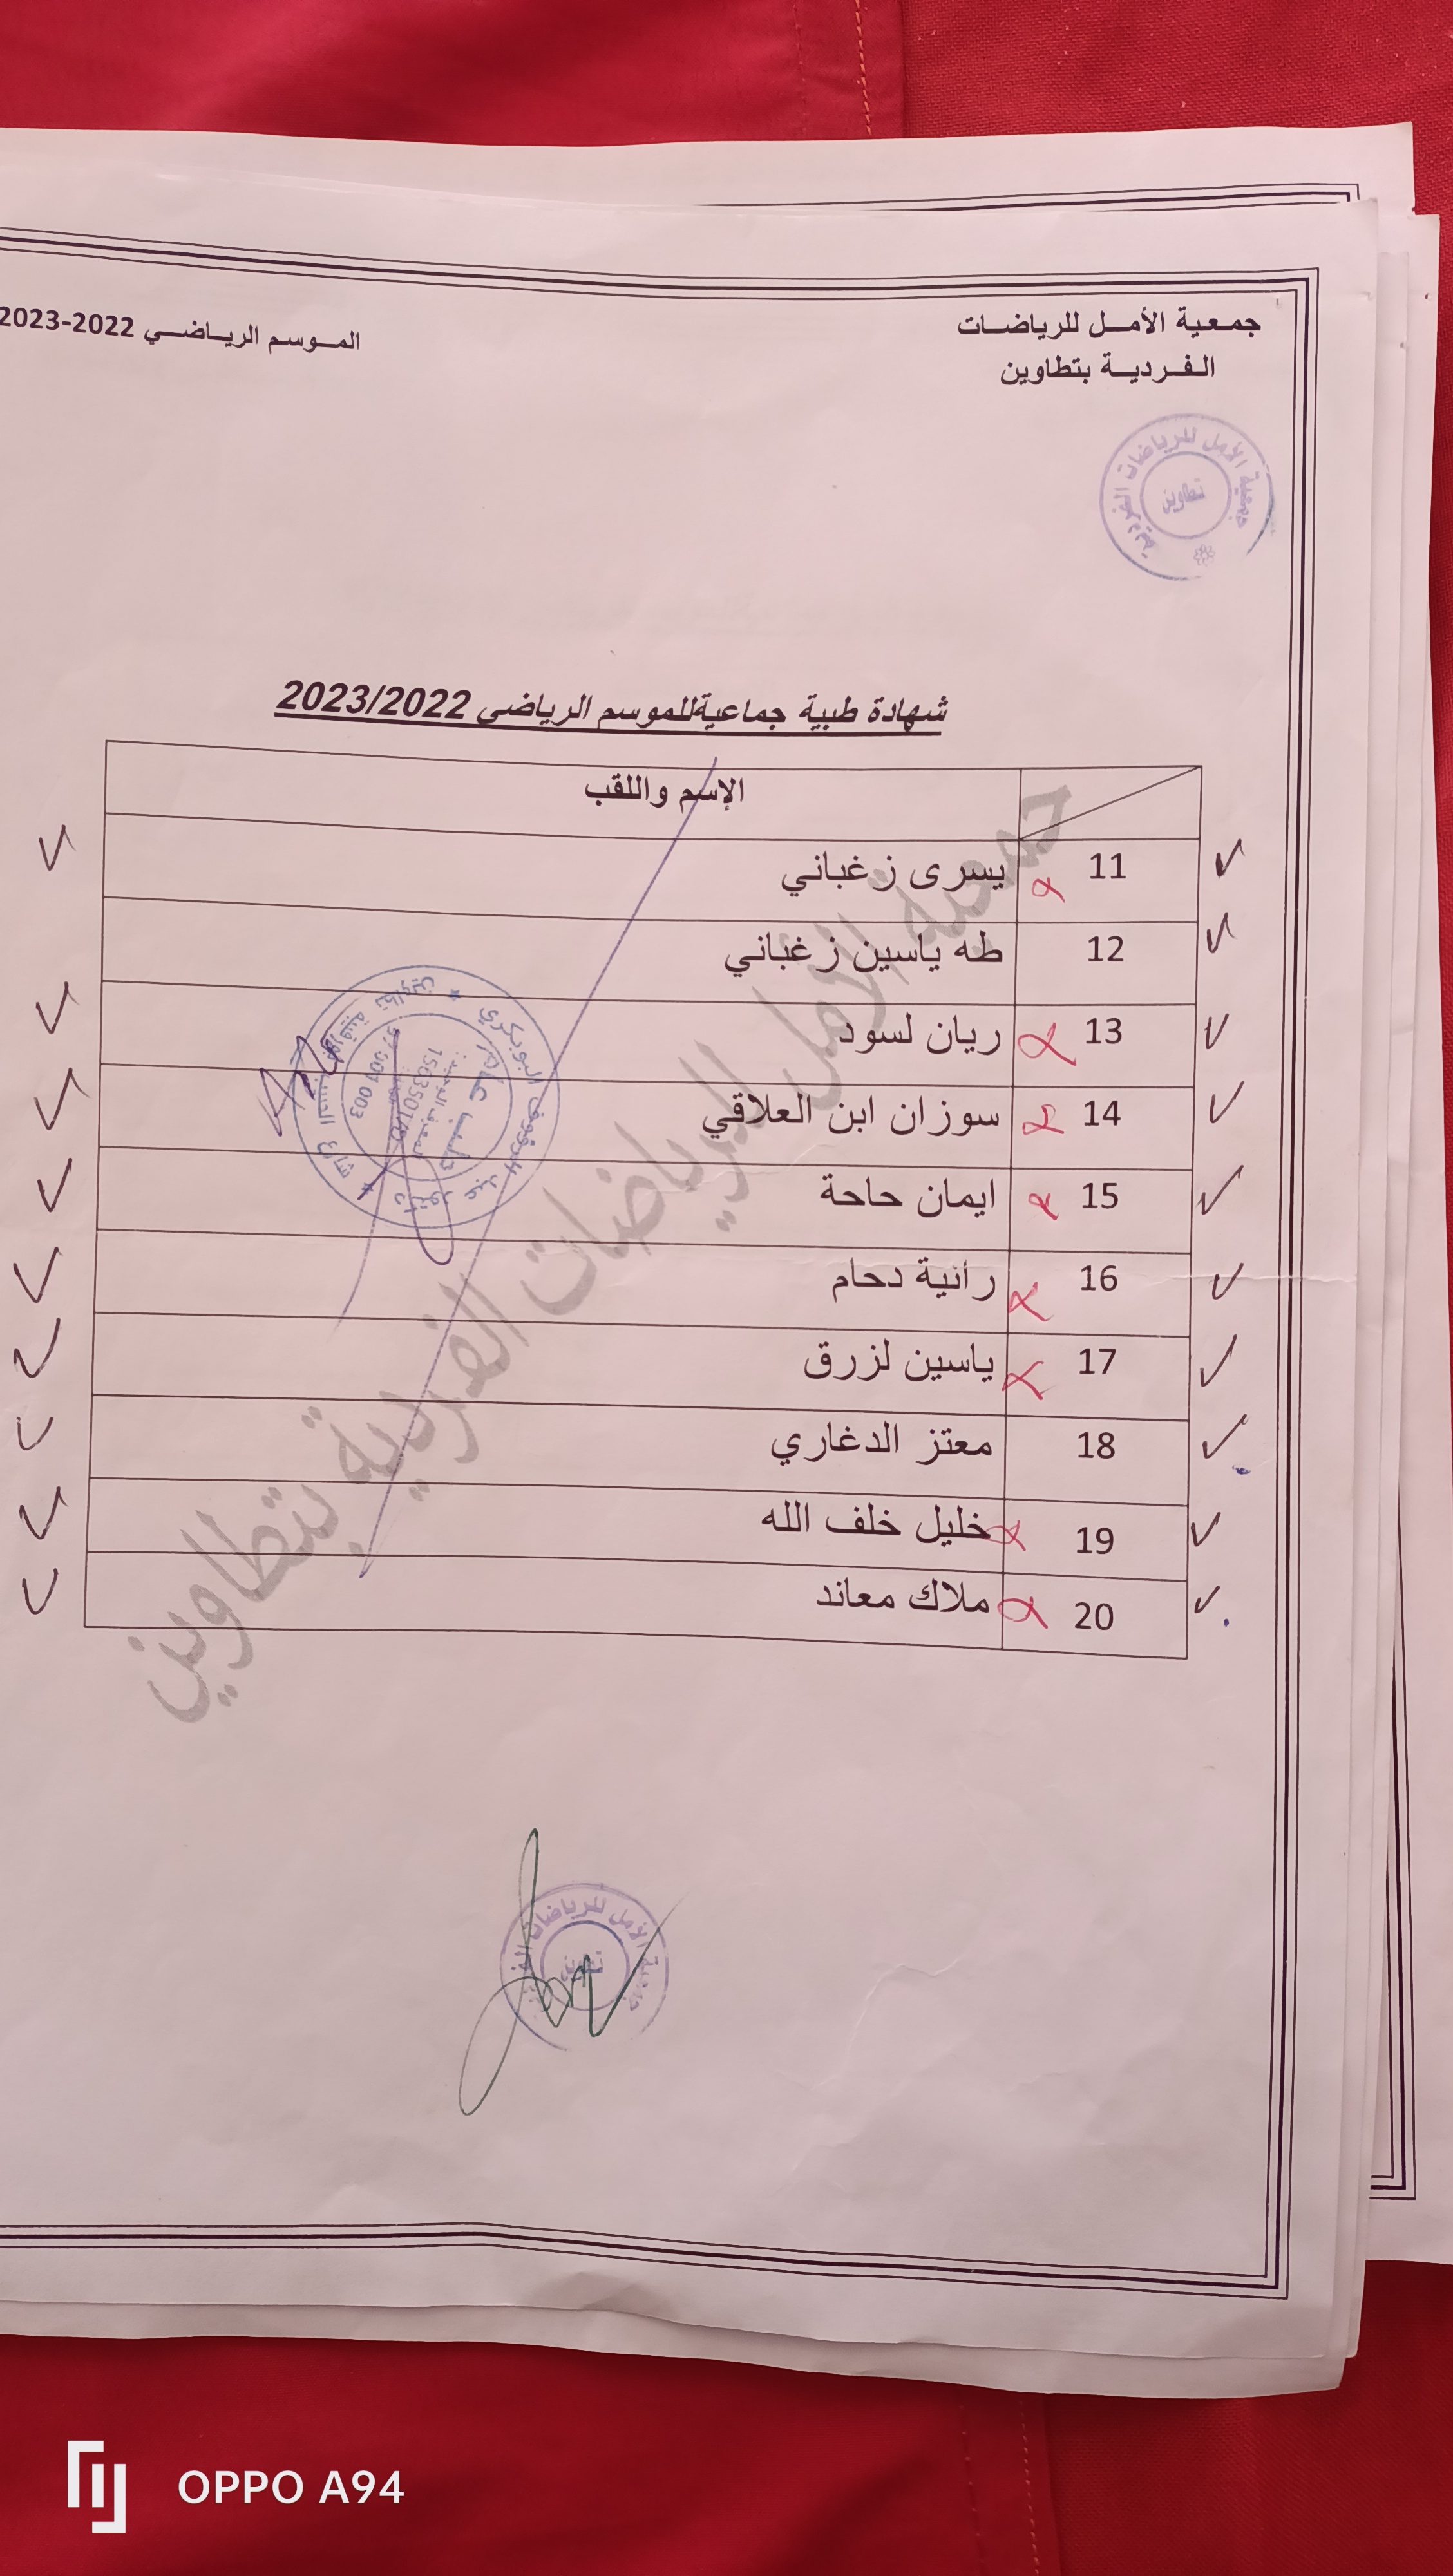 جمعية الأمل للرياضات
الفردية بتطاوين
الموسم الرياضي 2022-2023
جمعية الأمل للرياضات الفردية
تطاوين
شهادة طبية جماعيةللموسم الرياضي 2023/2022
الإسم واللقب
11 يسرى زغباني
12 طه ياسين زغباني
13 ريان لسود
14 سوزان ابن العلاقي
15 ايمان حاحة
16 رانية دحام
17 ياسين لزرق
18 معتز الدغاري
19 خليل خلف الله
20 ملاك معاند
جمعية الأمل للرياضات الفردية بتطاوين
OPPO A94